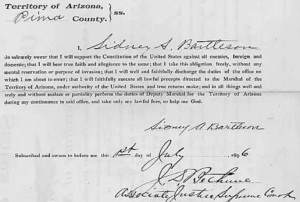 Territory of Arizona,
Pima County. } ss.
I, Sidney A. Bartleson
do solemnly swear that I will support the Constitution of the United States against all enemies, foreign and
domestic; that I will bear true faith and allegiance to the same; that I take this obligation freely, without any
mental reservation or purpose of evasion; that I will well and faithfully discharge the duties of the office on
which I am about to enter; that I will faithfully execute all lawful precepts directed to the Marshal of the
Territory of Arizona, under authority of the United States and true returns make; and in all things well and
truly and without malice or partiality perform the duties of Deputy Marshal for the Territory of Arizona
during my continuance in said office, and take only my lawful fees, so help me God.
Sidney A Bartleson
Subscribed and sworn to before me this 1st day of July 1896
J. D. Bethune
Associate Justice Supreme Court